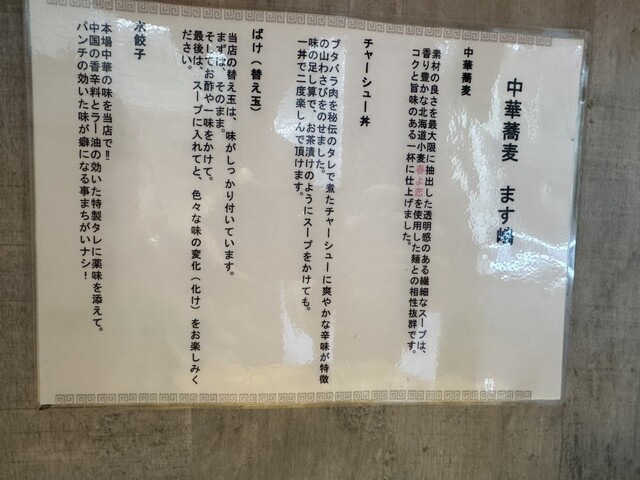 中華蕎麦 ます嶋
中華蕎麦
素材の良さを最大限に抽出した透明感のある繊細なスープは、
香り豊かな北海道小麦春よ恋を使用した麺との相性抜群です。
コクと旨味のある一杯に仕上げました。
チャーシュー丼
ブタバラ肉を秘伝のタレで煮たチャーシューに爽やかな辛味が特徴
の山わさびをのせました。
味の足し算で、お茶漬けのようにスープをかけても。
一丼で二度楽しんで頂けます。
ばけ(替え玉)
当店の替え玉は、味がしっかり付いています。
まずは、そのまま。
そしてお酢や一味をかけて。
最後は、スープに入れてと、色々な味の変化(化け)をお楽しみく
ださい。
水餃子
本場中華の味を当店で‼
中国の香辛料とラー油の効いた特製タレに薬味を添えて。
パンチの効いた味が癖になる事まちがいナシ!